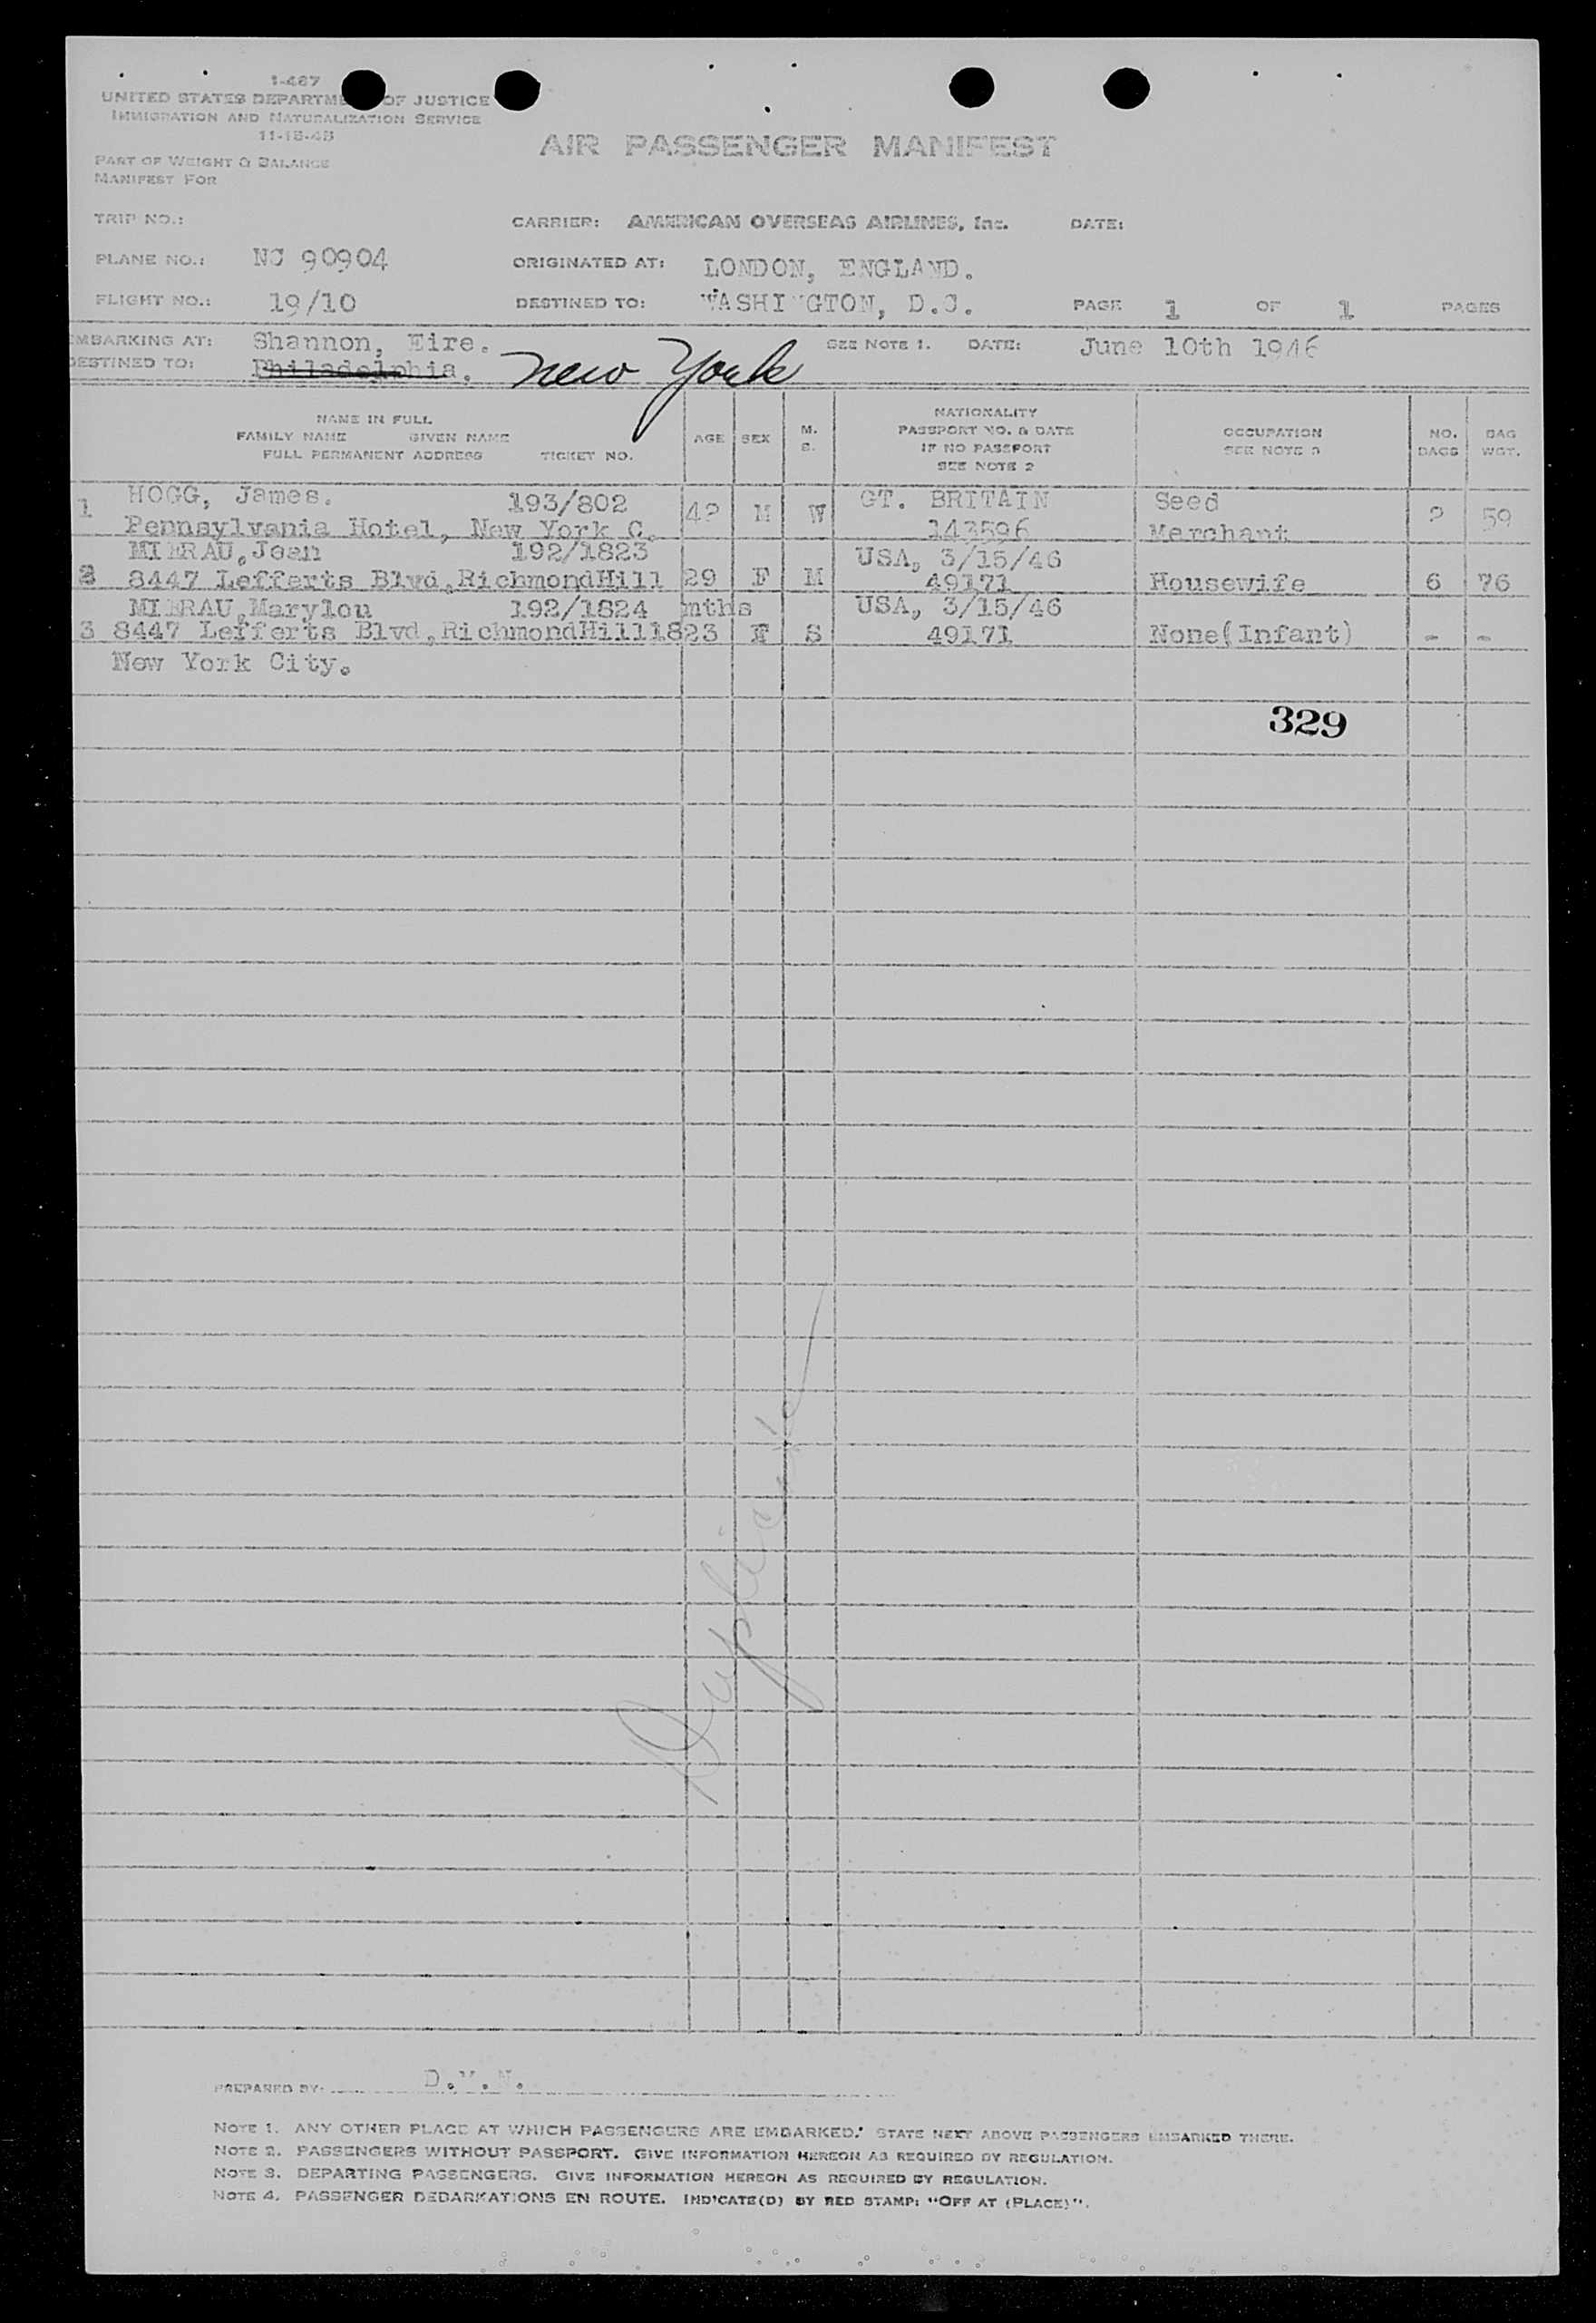 1-467
UNITED STATES DEPARTMENT OF JUSTICE
IMMIGRATION AND NATURALIZATION SERVICE
11-18-45
PART OF WEIGHT & BALANCE
MANIFEST FOR
AIR PASSENGER MANIFEST
TRIP NO.: CARRIER: AMERICAN OVERSEAS AIRLINES, Inc. DATE:
PLANE NO.: NC 90904 ORIGINATED AT: LONDON, ENGLAND.
FLIGHT NO.: 19/10 DESTINED TO: WASHINGTON, D.C. PAGE 1 OF 1 PAGES
EMBARKING AT: Shannon, Eire. SEE NOTE 1. DATE: June 10th 1946
DESTINED TO: Philadelphia. New York
NAME IN FULL
FAMILY NAME GIVEN NAME
FULL PERMANENT ADDRESS TICKET NO. AGE SEX M. S. NATIONALITY PASSPORT NO. & DATE IF NO PASSPORT SEE NOTE 2 OCCUPATION SEE NOTE 3 NO. BAGS BAG WGT.
HOGG, James. 193/802 GT. BRITAIN Seed
1 Pennsylvania Hotel, New York C. 42 M W 143596 Merchant 2 59
MIERAU, Jean 192/1823 USA, 3/15/46
2 8447 Lefferts Blvd, RichmondHill 29 F M 49171 Housewife 6 76
MIERAU, Marylou 192/1824 mths USA, 3/15/46
3 8447 Lefferts Blvd, RichmondHill1823 F S 49171 None(Infant) - -
New York City.
329
Duplicate
PREPARED BY: D.M.N.
NOTE 1. ANY OTHER PLACE AT WHICH PASSENGERS ARE EMBARKED: STATE NEXT ABOVE PASSENGERS EMBARKED THERE.
NOTE 2. PASSENGERS WITHOUT PASSPORT. GIVE INFORMATION HEREON AS REQUIRED BY REGULATION.
NOTE 3. DEPARTING PASSENGERS. GIVE INFORMATION HEREON AS REQUIRED BY REGULATION.
NOTE 4. PASSENGER DEBARKATIONS EN ROUTE. INDICATE(D) BY RED STAMP: "OFF AT (PLACE)".